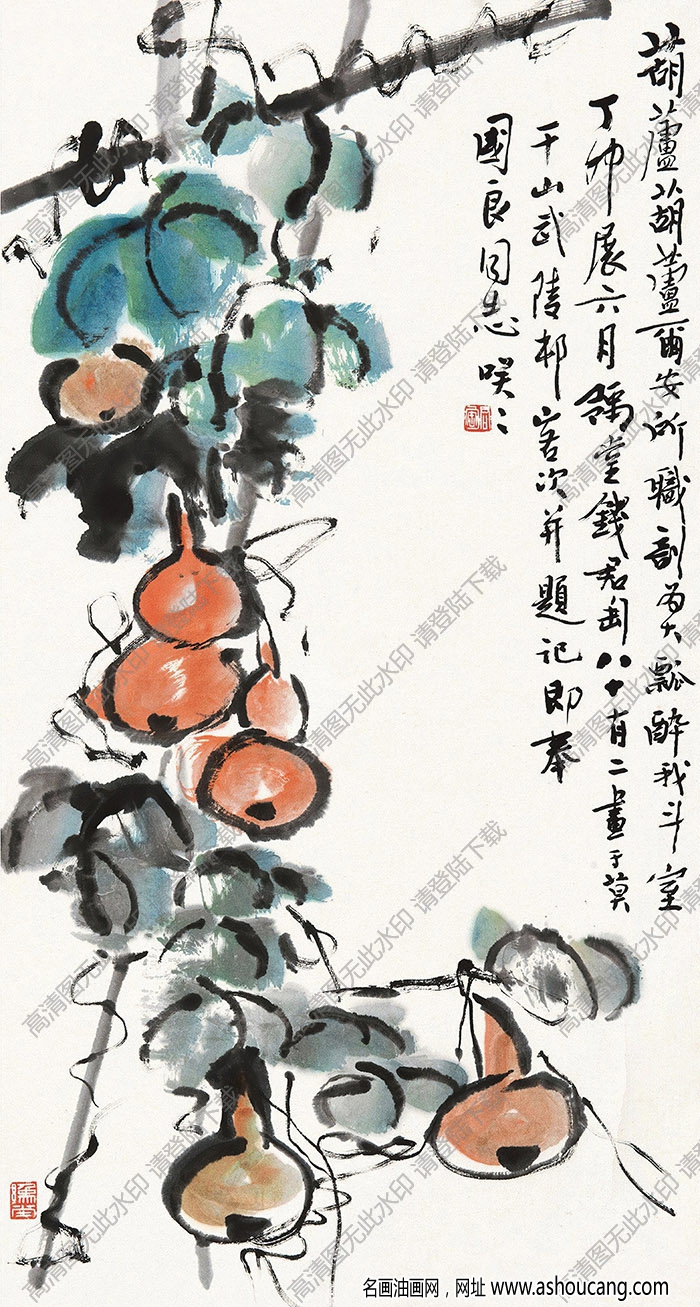 葫蘆葫蘆爾安所職剖為大瓢醉我斗室
丁卯展六月豫堂錢君匋八十有二畫于莫
干山武陵邨客次并題記即奉
國良同志咲〻
高清图无此水印 请登陆下载
名画油画网，网址 www.ashoucang.com